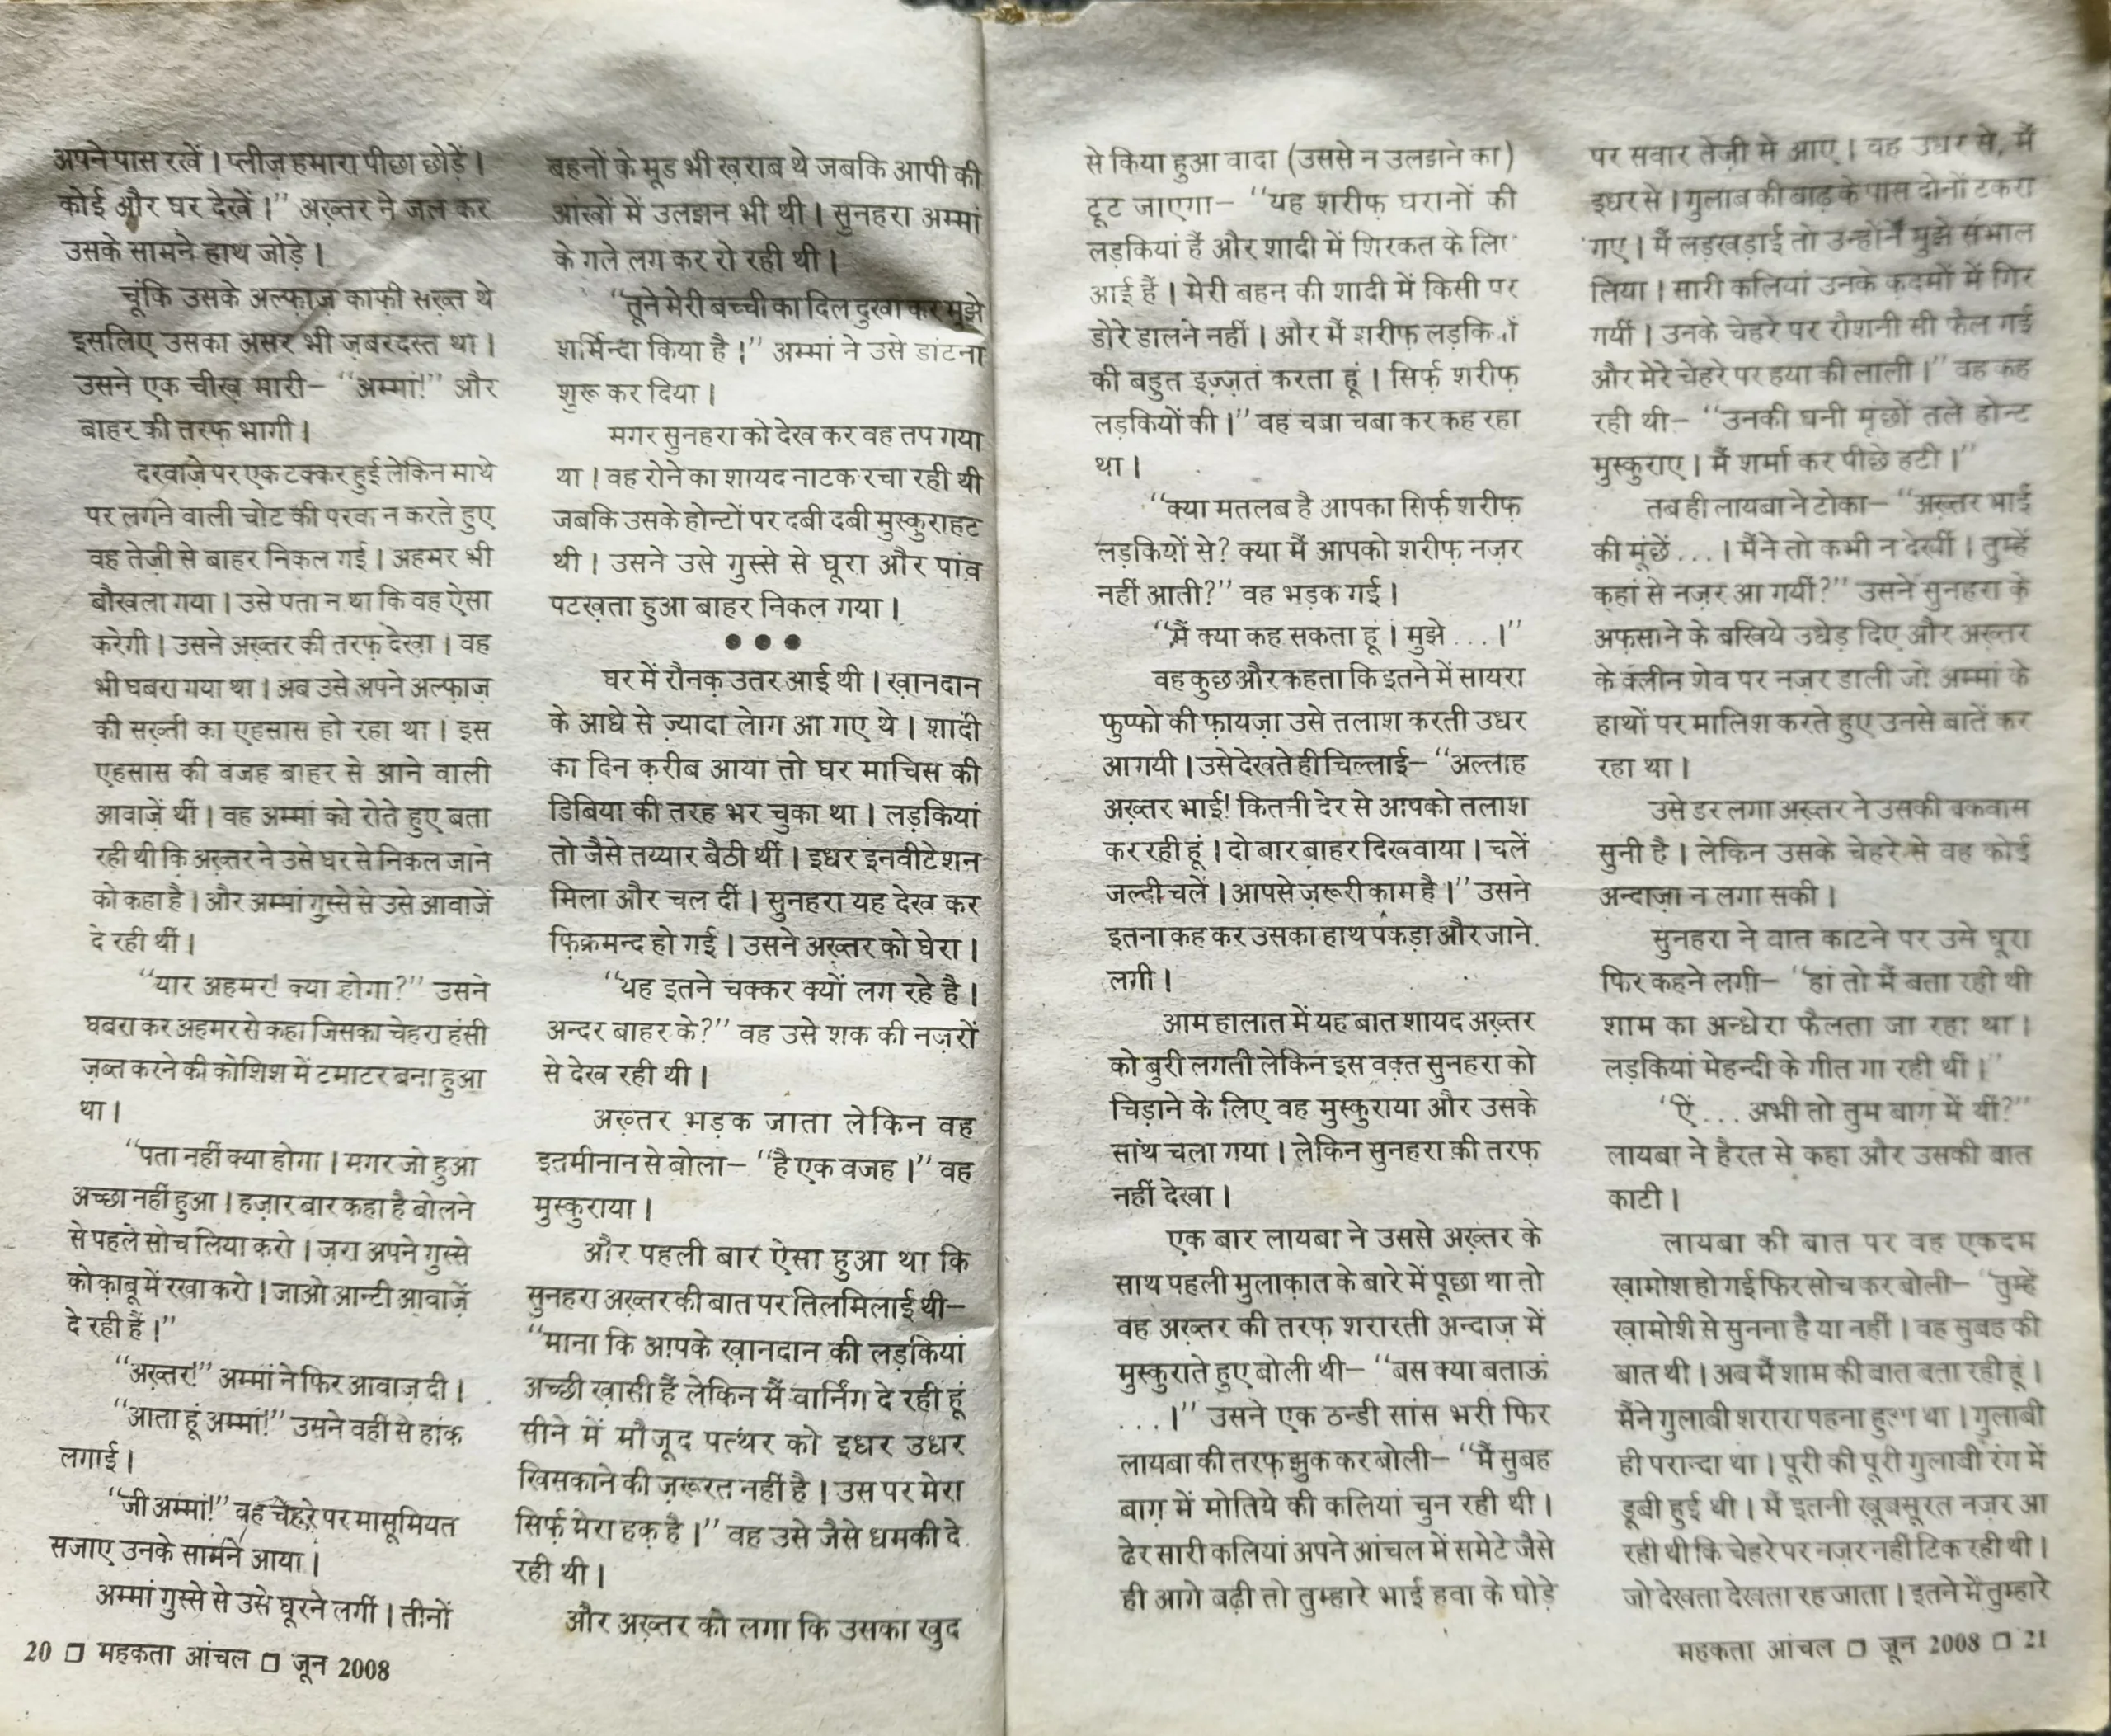 अपने पास रखें। प्लीज़ हमारा पीछा छोड़ें।
कोई और घर देखें।” अख़्तर ने जल कर
उसके सामने हाथ जोड़े।
चूंकि उसके अल्फ़ाज़ काफ़ी सख़्त थे
इसलिए उसका असर भी ज़बरदस्त था।
उसने एक चीख़ मारी– “अम्मां!” और
बाहर की तरफ़ भागी।
दरवाज़े पर एक टक्कर हुई लेकिन माथे
पर लगने वाली चोट की परवा न करते हुए
वह तेज़ी से बाहर निकल गई। अहमर भी
बौखला गया। उसे पता न था कि वह ऐसा
करेगी। उसने अख़्तर की तरफ़ देखा। वह
भी घबरा गया था। अब उसे अपने अल्फ़ाज़
की सख़्ती का एहसास हो रहा था। इस
एहसास की वजह बाहर से आने वाली
आवाज़ें थीं। वह अम्मां को रोते हुए बता
रही थी कि अख़्तर ने उसे घर से निकल जाने
को कहा है। और अम्मां गुस्से से उसे आवाज़ें
दे रही थीं।
“यार अहमर! क्या होगा?” उसने
घबरा कर अहमर से कहा जिसका चेहरा हंसी
ज़ब्त करने की कोशिश में टमाटर बना हुआ
था।
“पता नहीं क्या होगा। मगर जो हुआ
अच्छा नहीं हुआ। हज़ार बार कहा है बोलने
से पहले सोच लिया करो। ज़रा अपने गुस्से
को क़ाबू में रखा करो। जाओ आन्टी आवाज़ें
दे रही हैं।”
“अख़्तर!” अम्मां ने फिर आवाज़ दी।
“आता हूं अम्मां!” उसने वहीं से हांक
लगाई।
“जी अम्मां!” वह चेहरे पर मासूमियत
सजाए उनके सामने आया।
अम्मां गुस्से से उसे घूरने लगीं। तीनों
20 □ महकता आंचल □ जून 2008
बहनों के मूड भी ख़राब थे जबकि आपी की
आंखों में उलझन भी थी। सुनहरा अम्मां
के गले लग कर रो रही थी।
“तूने मेरी बच्ची का दिल दुखा कर मुझे
शर्मिन्दा किया है।” अम्मां ने उसे डांटना
शुरू कर दिया।
मगर सुनहरा को देख कर वह तप गया
था। वह रोने का शायद नाटक रचा रही थी
जबकि उसके होन्टों पर दबी दबी मुस्कुराहट
थी। उसने उसे गुस्से से घूरा और पांव
पटख़ता हुआ बाहर निकल गया।
●●●
घर में रौनक़ उतर आई थी। ख़ानदान
के आधे से ज़्यादा लेाग आ गए थे। शादी
का दिन क़रीब आया तो घर माचिस की
डिबिया की तरह भर चुका था। लड़कियां
तो जैसे तय्यार बैठी थीं। इधर इनवीटेशन
मिला और चल दीं। सुनहरा यह देख कर
फ़िक्रमन्द हो गई। उसने अख़्तर को घेरा।
“यह इतने चक्कर क्यों लग रहे है।
अन्दर बाहर के?” वह उसे शक की नज़रों
से देख रही थी।
अख़्तर भड़क जाता लेकिन वह
इतमीनान से बोला– “है एक वजह।” वह
मुस्कुराया।
और पहली बार ऐसा हुआ था कि
सुनहरा अख़्तर की बात पर तिलमिलाई थी–
“माना कि आपके ख़ानदान की लड़कियां
अच्छी ख़ासी हैं लेकिन मैं वार्निंग दे रही हूं
सीने में मौजूद पत्थर को इधर उधर
खिसकाने की ज़रूरत नहीं है। उस पर मेरा
सिर्फ़ मेरा हक़ है।” वह उसे जैसे धमकी दे
रही थी।
और अख़्तर को लगा कि उसका खुद
से किया हुआ वादा (उससे न उलझने का)
टूट जाएगा– “यह शरीफ़ घरानों की
लड़कियां हैं और शादी में शिरकत के लिए
आई हैं। मेरी बहन की शादी में किसी पर
डोरे डालने नहीं। और मैं शरीफ़ लड़कियों
की बहुत इज़्ज़त करता हूं। सिर्फ़ शरीफ़
लड़कियों की।” वह चबा चबा कर कह रहा
था।
“क्या मतलब है आपका सिर्फ़ शरीफ़
लड़कियों से? क्या मैं आपको शरीफ़ नज़र
नहीं आती?” वह भड़क गई।
“मैं क्या कह सकता हूं। मुझे...।”
वह कुछ और कहता कि इतने में सायरा
फुप्फो की फ़ायज़ा उसे तलाश करती उधर
आ गयी। उसे देखते ही चिल्लाई– “अल्लाह
अख़्तर भाई! कितनी देर से आपको तलाश
कर रही हूं। दो बार बाहर दिखवाया। चलें
जल्दी चलें। आपसे ज़रूरी काम है।” उसने
इतना कह कर उसका हाथ पकड़ा और जाने
लगी।
आम हालात में यह बात शायद अख़्तर
को बुरी लगती लेकिन इस वक़्त सुनहरा को
चिड़ाने के लिए वह मुस्कुराया और उसके
साथ चला गया। लेकिन सुनहरा की तरफ़
नहीं देखा।
एक बार लायबा ने उससे अख़्तर के
साथ पहली मुलाक़ात के बारे में पूछा था तो
वह अख़्तर की तरफ़ शरारती अन्दाज़ में
मुस्कुराते हुए बोली थी– “बस क्या बताऊं
...।” उसने एक ठन्डी सांस भरी फिर
लायबा की तरफ़ झुक कर बोली– “मैं सुबह
बाग़ में मोतिये की कलियां चुन रही थी।
ढेर सारी कलियां अपने आंचल में समेटे जैसे
ही आगे बढ़ी तो तुम्हारे भाई हवा के घोड़े
पर सवार तेज़ी से आए। वह उधर से, मैं
इधर से। गुलाब की बाढ़ के पास दोनों टकरा
गए। मैं लड़खड़ाई तो उन्होंने मुझे संभाल
लिया। सारी कलियां उनके क़दमों में गिर
गयीं। उनके चेहरे पर रौशनी सी फैल गई
और मेरे चेहरे पर हया की लाली।” वह कह
रही थी– “उनकी घनी मूंछों तले होन्ट
मुस्कुराए। मैं शर्मा कर पीछे हटी।”
तब ही लायबा ने टोका– “अख़्तर भाई
की मूंछें...। मैंने तो कभी न देखीं। तुम्हें
कहां से नज़र आ गयीं?” उसने सुनहरा के
अफ़साने के बखिये उधेड़ दिए और अख़्तर
के क्लीन शेव पर नज़र डाली जो अम्मां के
हाथों पर मालिश करते हुए उनसे बातें कर
रहा था।
उसे डर लगा अख़्तर ने उसकी बकवास
सुनी है। लेकिन उसके चेहरे से वह कोई
अन्दाज़ा न लगा सकी।
सुनहरा ने बात काटने पर उसे घूरा
फिर कहने लगी– “हां तो मैं बता रही थी
शाम का अन्धेरा फैलता जा रहा था।
लड़कियां मेहन्दी के गीत गा रही थीं।”
“ऐं... अभी तो तुम बाग़ में थीं?”
लायबा ने हैरत से कहा और उसकी बात
काटी।
लायबा की बात पर वह एकदम
ख़ामोश हो गई फिर सोच कर बोली– “तुम्हें
ख़ामोशी से सुनना है या नहीं। वह सुबह की
बात थी। अब मैं शाम की बात बता रही हूं।
मैंने गुलाबी शरारा पहना हुआ था। गुलाबी
ही परान्दा था। पूरी की पूरी गुलाबी रंग में
डूबी हुई थी। मैं इतनी ख़ूबसूरत नज़र आ
रही थी कि चेहरे पर नज़र नहीं टिक रही थी।
जो देखता देखता रह जाता। इतने में तुम्हारे
महकता आंचल □ जून 2008 □ 21